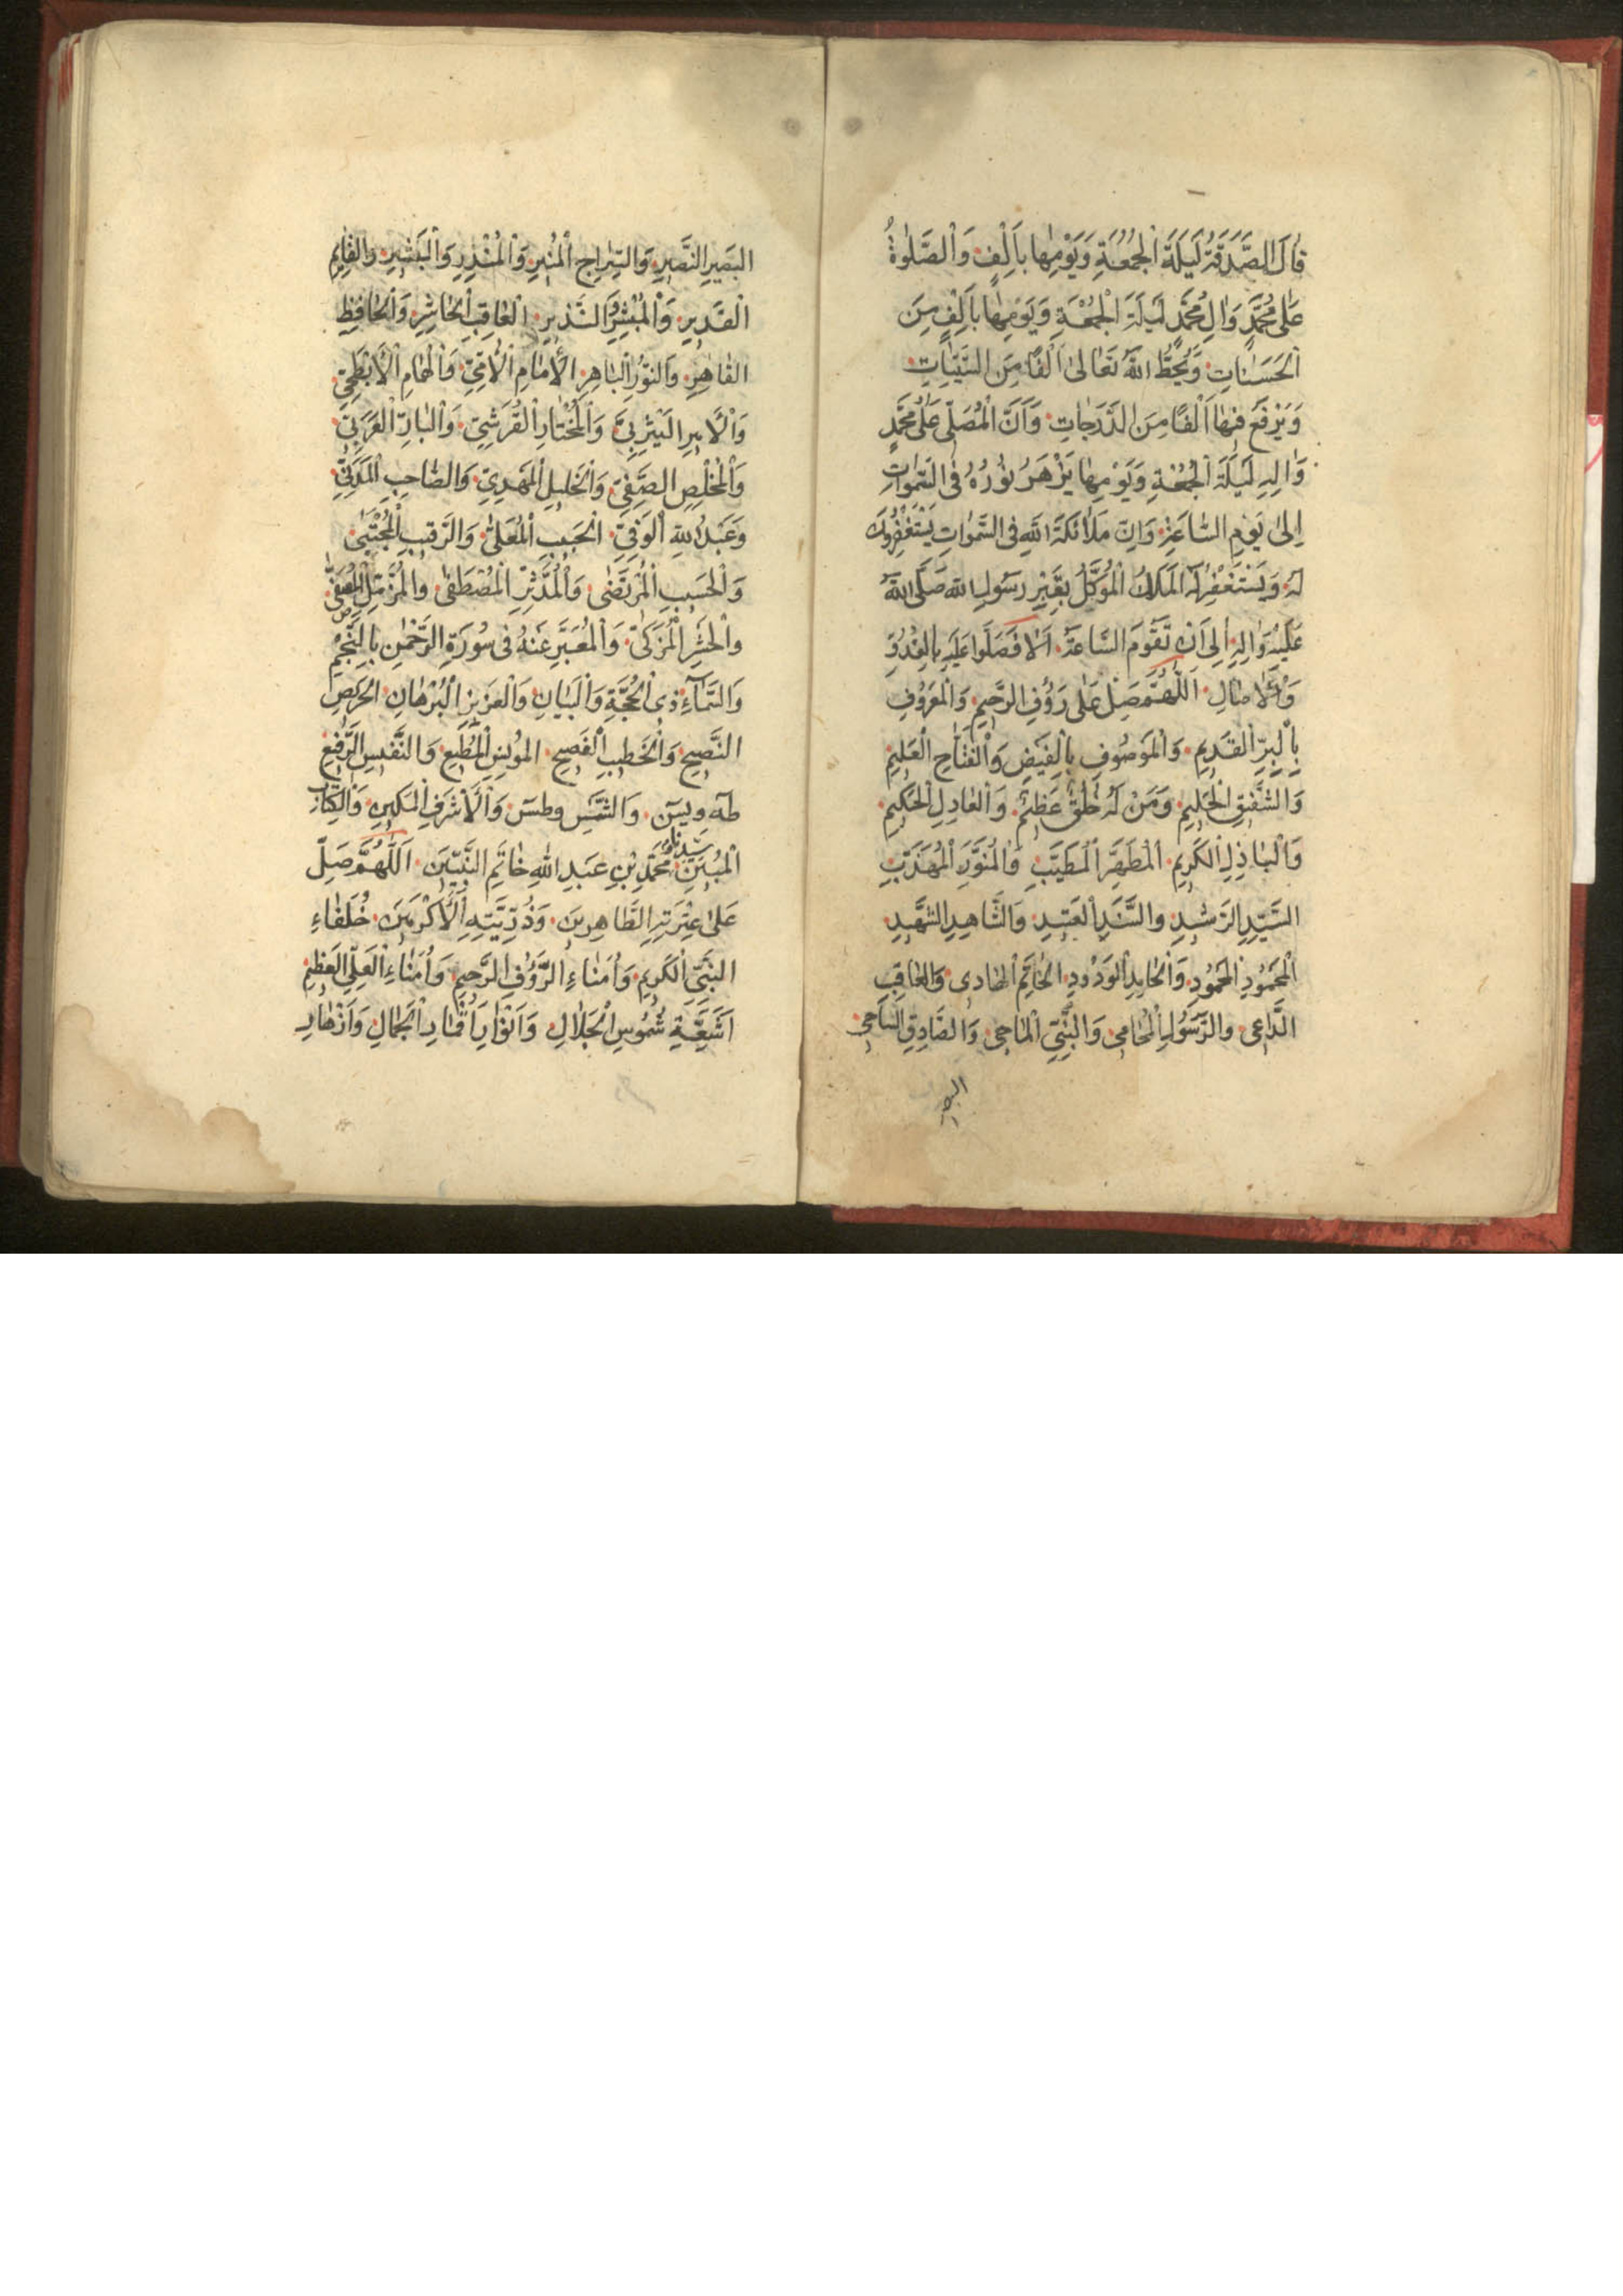 قٰالَ الصَّدَقَةُ لَيْلَةَ الْجُمُعَةِ وَيَوْمِهٰا بِاَلْفٍ وَالصَّلٰوةُ
عَلٰى مُحَمَّدٍ وَاٰلِ مُحَمَّدٍ لَيْلَةَ الْجُمُعَةِ وَيَوْمِهٰا بِاَلْفٍ مِنَ
الْحَسَنٰاتِ وَيَحُطُّ اللّٰهُ تَعٰالىٰ اَلْفًا مِنَ السَّيِّئٰاتِ
وَيَرْفَعُ فِيهٰا اَلْفًا مِنَ الدَّرَجٰاتِ وَاَنَّ الْمُصَلّى عَلٰى مُحَمَّدٍ
وَاٰلِهِ لَيْلَةَ الْجُمُعَةِ وَيَوْمِهٰا يَزْهَرُ نُورُهُ فِى السَّمٰوٰاتِ
اِلىٰ يَوْمِ السّٰاعَةِ وَاِنَّ مَلاٰئكَةَ اللّٰهِ فِى السَّمٰواتِ يَسْتَغْفِرُونَ
لَهُ وَيَسْتَغْفِرُ لَهُ الْمَلَكُ الْمُوَكَّلُ بِقَبْرِ رَسُولِ اللّٰهِ صَلَّى اللّٰهُ
عَلَيْهِ وَاٰلِهِ اِلى اَنْ تَقُومَ السّٰاعَةُ اَلاٰ فَصَلُّوا عَلَيْهِ بِالْغُدُوِّ
وَالْاٰصٰالِ اَللّٰهُمَّ صَلِّ عَلٰى رَؤُفِ الرَّحِيمِ وَالْمَعْرُوفِ
بِالْبِرِّ الْقَدِيمِ وَالْمَوْصُوفِ بِالْفَيْضِ وَالْفَتّٰاحِ الْعَلِيمِ
وَالشَّفِيقِ الْحَلِيمِ وَمَنْ لَهُ خُلُقٌ عَظِيمٌ وَالْعٰادِلِ الْحَكِيمِ
وَالْبٰاذِلِ الْكَرِيمِ الْمُطَهَّرِ الْمُطَيَّبِ وَالْمُنَوَّرِ الْمُهَذَّبِ
السَّيِّدِ الرَّشِيدِ وَالسَّنَدِ الْعَتِيدِ وَالشّٰاهِدِ الشَّهِيدِ
الْمَحْمُودِ الْحَمُودِ وَالْحٰامِدِ الْوَدُودِ الْخٰاتَمِ الْهٰادى وَالْعٰاقِبِ
الدّٰاعى وَالرَّسُولِ الْحٰامى وَالنَّبِيِّ الْمٰاحِى وَالصّٰادِقِ النّٰاجى
البصير
البَصِيرِ النَّصِيرِ وَالسِّرٰاجِ الْمُنِيرِ وَالْمُنْذِرِ وَالْبَشِيرِ وَالْقٰايِمِ
الْقَدِيرِ وَالْمُبَشِّرِ وَالنَّذِيرِ الْعٰاقِبِ الْحٰاشِرِ وَالْحٰافِظِ
القٰاهِرِ وَالنُّورِ الْبٰاهِرِ الْأِمٰامِ الْاُمِّيِّ وَالْهُمٰامِ الْأَبْطَحِيِّ
وَالْاَمِيرِ الْيَثْرِبِيِّ وَالْمُخْتٰارِ الْقُرَشِيِّ وَالْبٰارِّ الْعَرَبِيِّ
وَالْمُخْلِصِ الصَّفِيِّ وَالْخَلِيلِ الْمَهْدِيِّ وَالصّٰاحِبِ الْمَدَنِيِّ
وَعَبْدِ اللّٰهِ الْوَفِيِّ الْحَبِيبِ الْمُعَلّىٰ وَالرَّقِيبِ الْمُجْتَبىٰ
وَالْحَسِيبِ الْمُرْتَضٰى وَالْمُدَّثِّرِ الْمُصْطَفىٰ وَالْمُزَّمِّلِ الْمُصَفّىٰ
وَالْمُزَكّىٰ وَالْمُعَبَّرِ عَنْهُ فى سُورَةِ الرَّحْمٰنِ بِالنَّجْمِ
وَالسَّمٰآءِ ذِى الْحُجَّةِ وَالْبَيٰانِ وَالْعَزِيزِ الْبُرْهٰانِ الْحَرِيصِ
النَّصِيحِ وَالْخَطِيبِ الْفَصِيحِ المُونِسِ الْمُطِيعِ وَالنَّفِيسِ الرَّفِيعِ
طٰهٰ وَيسٓ وَالشَّمْسِ وطسٓ وَالْأَشْرَفِ الْمَكِينِ وَالْكِتٰابِ
الْمُبِينِ سَيِّدِنٰا مُحَمَّدِ بْنِ عَبْدِ اللّٰهِ خٰاتَمِ النَّبِيّينَ اَللّٰهُمَّ صَلِّ
عَلىٰ عِتْرَتِهِ الطّٰاهِرِينَ وَذُرِّيَّتِهِ الْأَكْرَمِينَ خُلَفٰاءِ
النَّبِيِّ الْكَرِيمِ وَاُمَنٰاءِ الرَّؤُفِ الرَّحِيمِ وَاُمَنٰاءِ الْعَلِيِّ الْعَظِيمِ
اَشِعَّةِ شُمُوسِ الْجَلاٰلِ وَاَنْوٰارِ اَقْمٰارِ الْجَمٰالِ وَاَزْهٰارِ